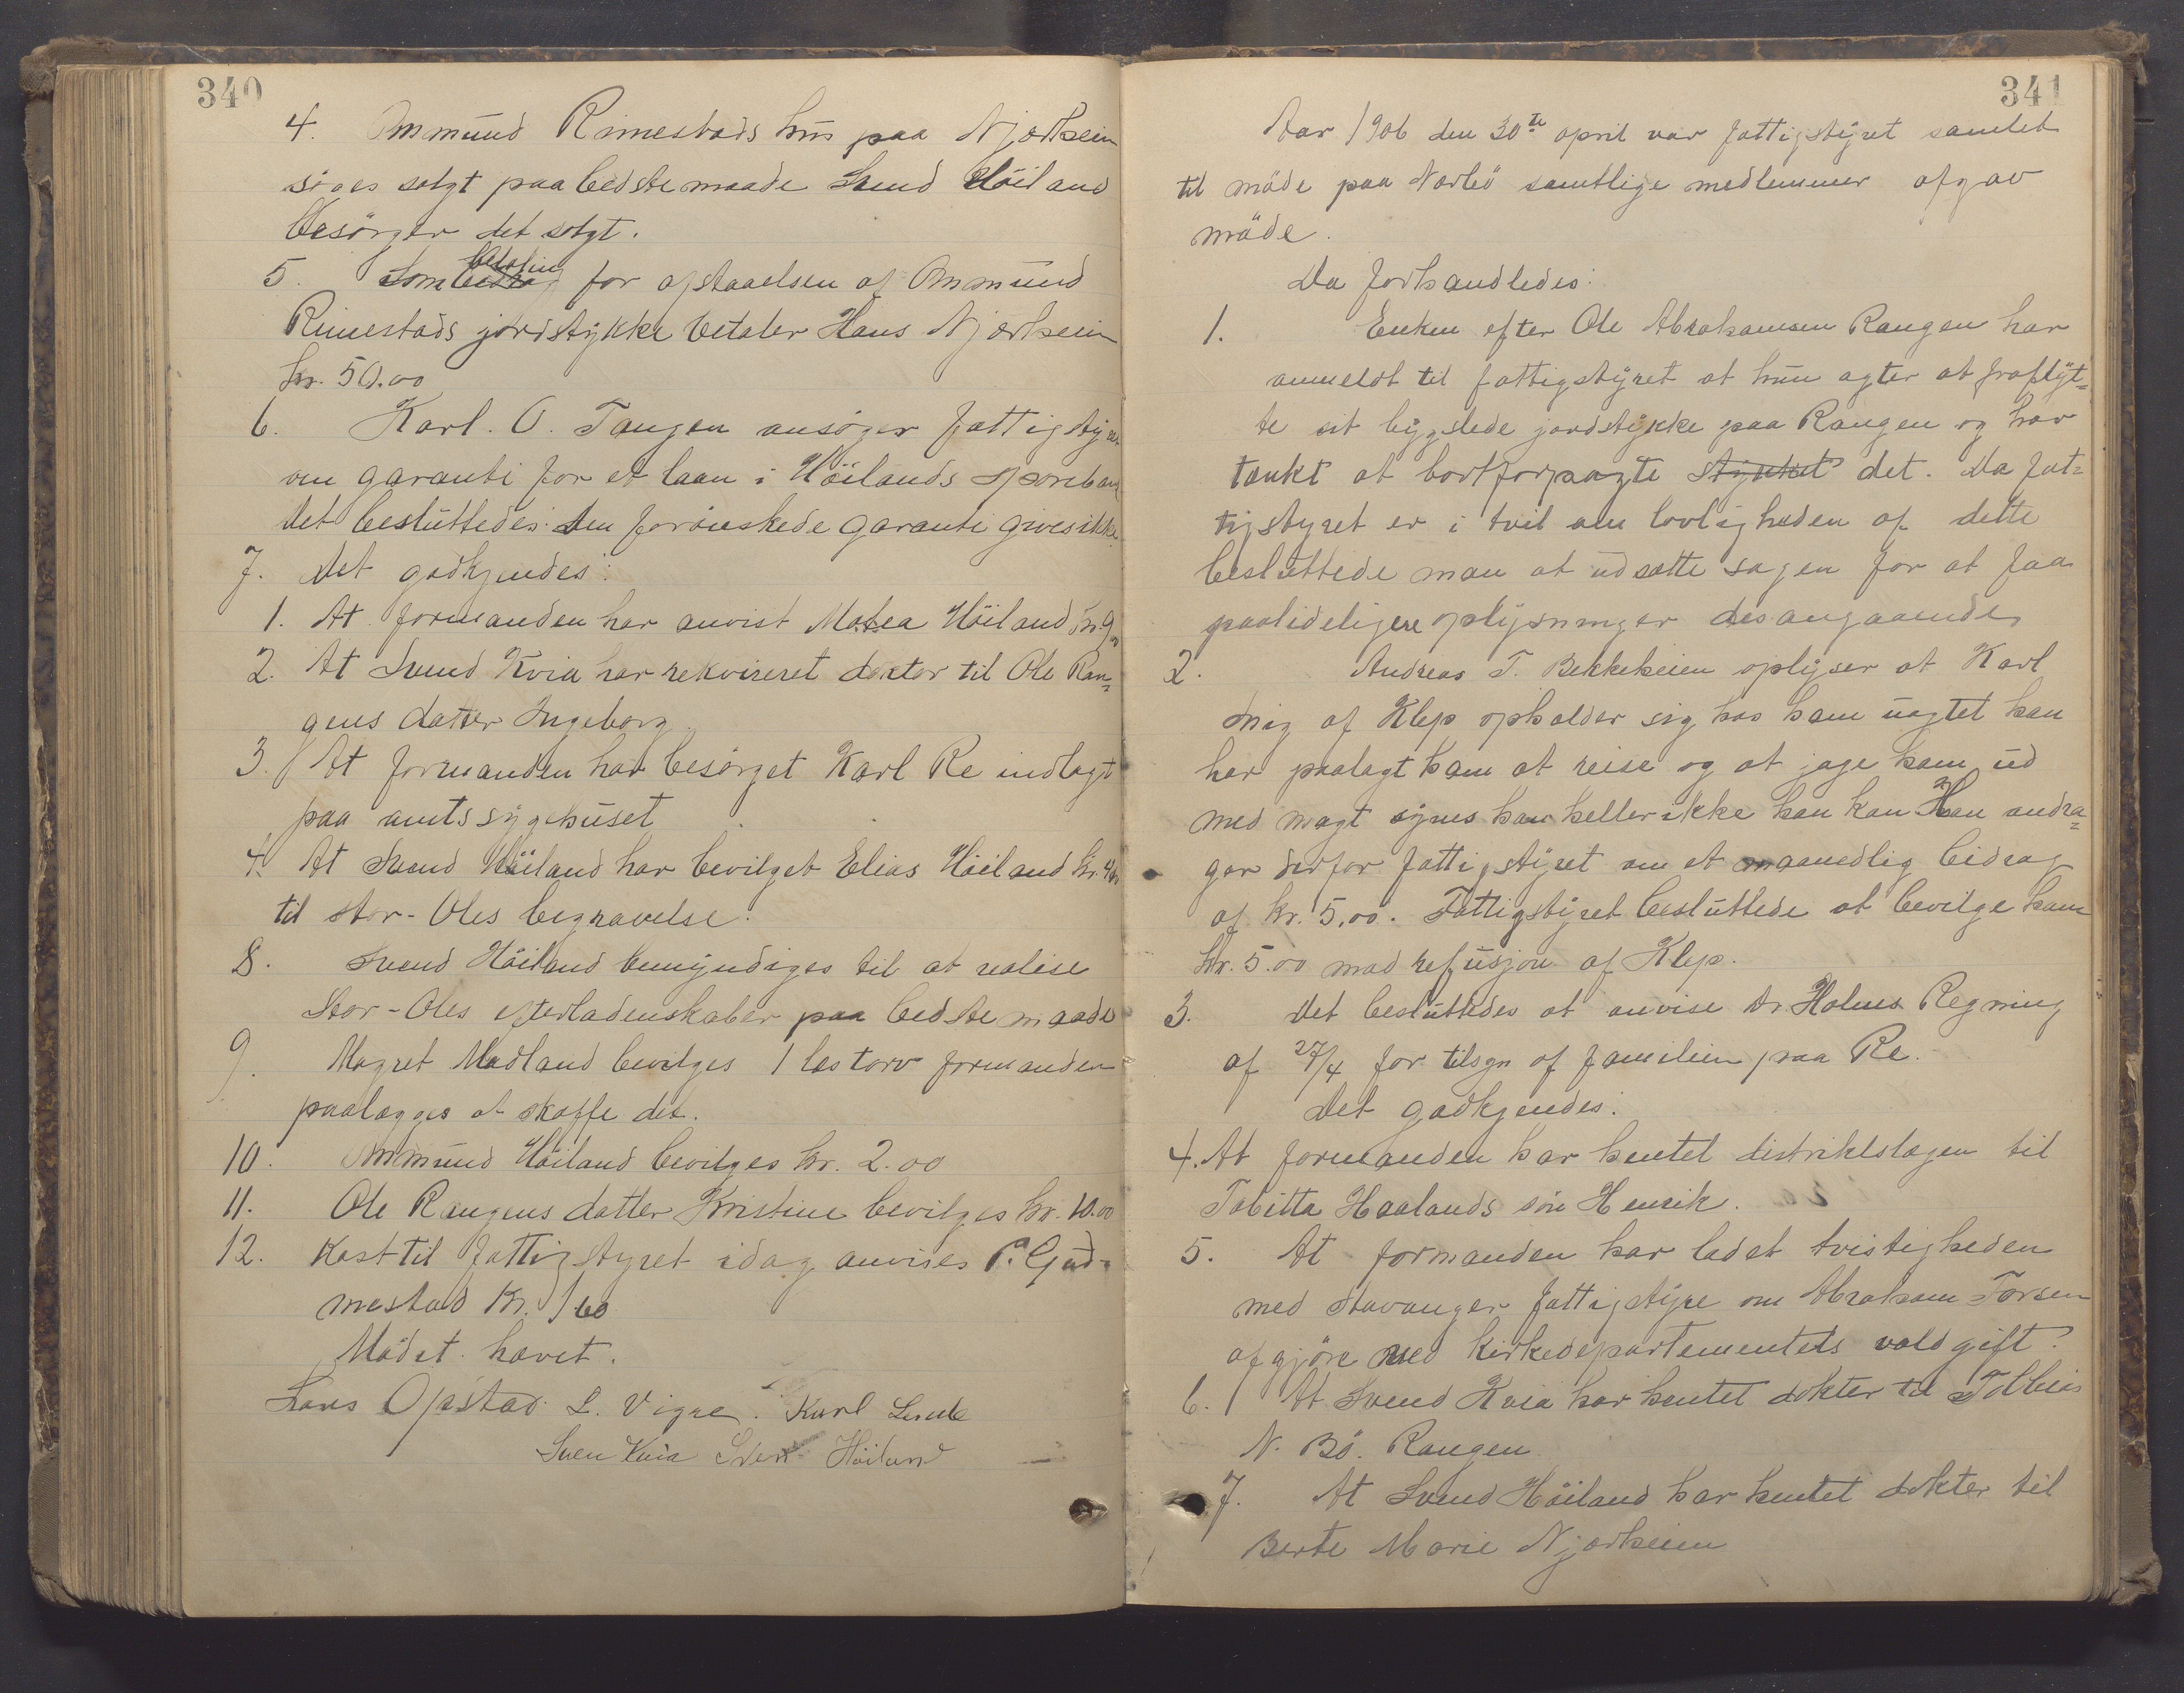 340
4. Ommund Rimestads hus paa Njærheim
söges solgt paa bedste maade Svend Höiland
besörger det solgt.
5. Som betaling for afstaaelsen af Ommund
Rimestads jordstykke betaler Hans Njærheim
kr. 50.00
6. Karl. O. Tangen ansöger fattigstyret
om garanti for et laan i Höilands spareban
det besluttedes: den forönskede garanti gives ikke.
7. Det godkjendes:
1. At formanden har anvist Matea Höiland kr. 9
2. At Svend Kvia har rekvireret doktor til Ole Ran=
gens datter Ingeborg.
3. At formanden har besörget Karl Re indlagt
paa amtssygehuset
4. At Svend Höiland har bevilget Elias Höiland kr. 4.00
til stor-Oles begravelse.
8. Svend Höiland bemyndiges til at realise
Stor-Oles efterladenskaber paa bedste maade
9. Magret Madland bevilges 1 læs torv formanden
paalægges at skaffe det.
10. Ommund Höiland bevilges kr. 2.00
11. Ole Rangens datter Kristine bevilges kr. 10.00
12. Kost til fattigstyret idag anvises P. Gud=
mestad Kr. 1.60
Mödet hævet.
Lars Opstad L. Vigre. Karl Lende
Sven Kvia Sven Höiland
341
Aar 1906 den 30te april var fattigstyret samlet
til möde paa Nærbö samtlige medlemmer afgav
möde.
Da forhandledes:
1. Enken efter Ole Abrahamsen Rangen har
anmeldt til fattigstyret at hun agter at fraflyt=
te sit bygslede jordstykke paa Rangen og har
tænkt at bortforpagte stykket det. Da fat=
tigstyret er i tvil om lovligheden af dette
besluttede man at udsætte sagen for at faa
paalideligere oplysninger desangaaende.
2. Andreas T. Bekkeheien oplyser at Karl
af Klep opholder sig hos ham uagtet han
har paalagt ham at reise og at jage ham ud
med magt synes han heller ikke han kan Han andra=
gar derfor fattigstyret om et maanedlig bidrag
af kr. 5.00. Fattigstyret besluttede at bevilge ham
kr. 5.00 mod refusjon af Klep.
3. Det besluttedes at anvise Dr. Holmes Regning
af 27/4 for tilsyn af familien paa Re.
Det godkjendes:
4. At formanden har hentet distriktslægen til
Tabitta Haalands sön Henrik.
5. At formanden har ladet tvistigheden
med Stavanger fattigstyre om Abraham Torsen
afgjöre ved kirkedepartementets voldgift.
6. At Svend Kvia har hentet dokter til Tobias
N. Bö. Rangen
7. At Svend Höiland har hentet dokter til
Berte Marie Njærheim